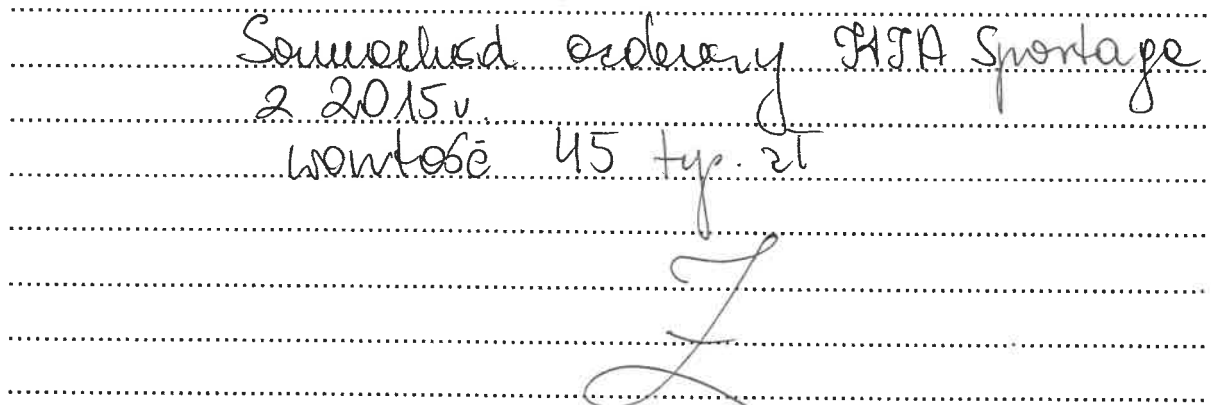 Samochód osobowy KIA Sportage
z 2015 r.
wartość 45 tyś. zł